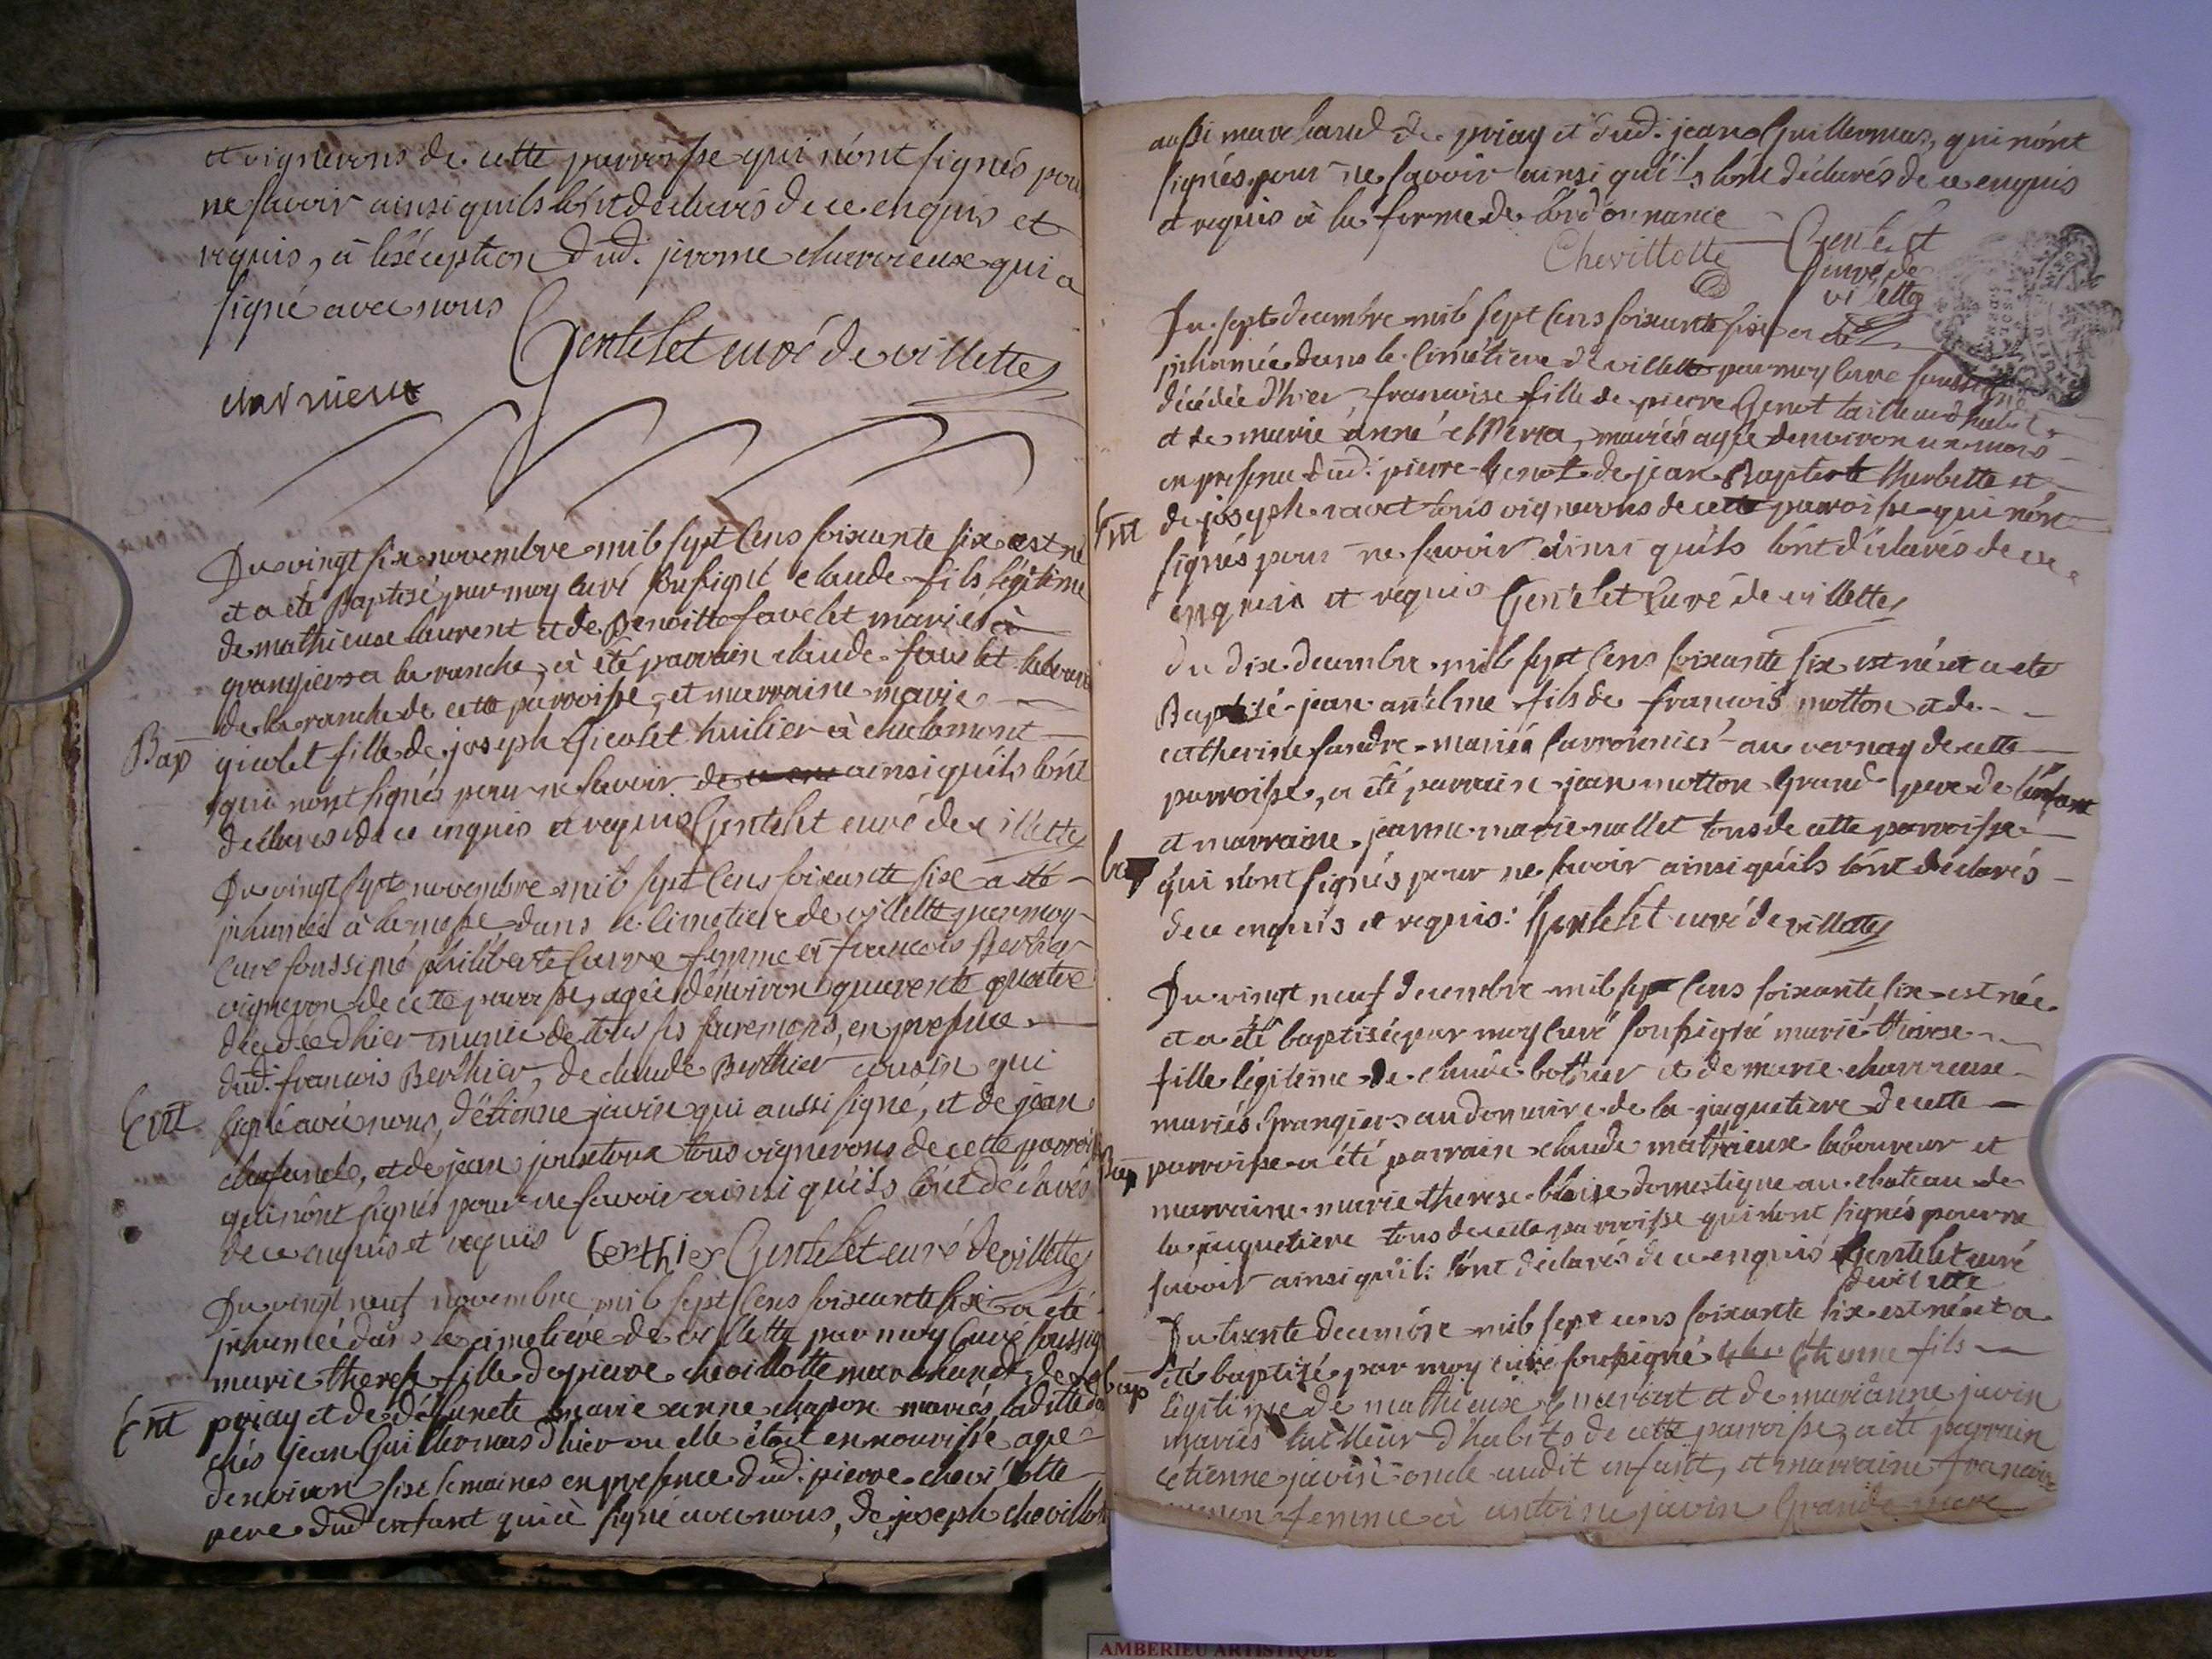 et vignerons de cette parroisse qui n'ont signés pour
ne savoir ainsi quils l'ont declarés de ce enquis et
requis, à l'exception dud. jerome charvieux qui a
signé avec nous
Gentelet curé de villette
charvieux
Du vingt six novembre mil sept cens soixante six est né
et a été Baptisé par moy curé soussigné claude fils légitime
de mathieux laurent et de Benoitte favelet mariés
grangiers a la ranche, à été parrain claude favelet
de la ranche de cette parroisse, et marraine marie
Bap
gicolet fille de joseph gicolet huilier à chalamont
qui n'ont signés pour ne savoir ainsi quils l'ont
declarés de ce enquis et requis Gentelet curé de villette
Du vingt sept novembre mil sept cens soixante six a été
inhumée à la messe dans le cimetiere de villette par moy
curé soussigné philiberte femme à francois Berthier
vigneron de cette parroisse, agée d'environ quarente quatre
décédée d'hier munie de tous ses sacremens, en presence
dud. francois Berthier, de claude Berthier cousin qui
Ent
signé avec nous, d'étienne javin qui aussi signé, et de jean
et de jean tous vignerons de cette parroisse
qui n'ont signés pour ne savoir ainsi quils l'ont déclarés
de ce enquis et requis berthier Gentelet curé de villette
Du vingt neuf novembre mil sept cens soixante six a été
inhumée dans le cimetiere de villette par moy curé soussigné
marie therese fille de pierre chevillotte marchand de
Ent
priay et de défuncte marie anne chapon mariés
chés jean Guillermas d'hier ou elle étoit en nourisse agée
d'environ six semaines en presence dud. pierre chevillotte
pere dud enfant qui à signé avec nous, de joseph chevillotte
aussi marchand de priay et dud. jean Guillermas, qui n'ont
signés pour ne savoir ainsi qu'ils l'ont déclarés de ce enquis
et requis à la forme de l'ordonnance
Chevillotte
Gentelet
curé de
villette
Du sept decembre mil sept cens soixante six a été
inhumée dans le cimétiere de villette par moy curé soussigné
décédée d'hier francoise fille de pierre Genot tailleur d'habit
et de marie anne mariés agée d'environ un mois
en presence dud. pierre Genot de jean Baptiste et
Ent
de joseph ravet tous vignerons de cette parroisse qui n'ont
signés pour ne savoir ainsi quils l'ont déclarés de ce
enquis et requis Gentelet Curé de villette
du dix decembre mil sept cens soixante six est né et a été
Baptisé jean anselme fils de francois motton et de
catherine mariés au vernay de cette
parroisse, a été parrain jean motton Grand pere de l'enfant
et marraine jeanne marie nallet tous de cette parroisse
bap
qui n'ont signés pour ne savoir ainsi quils l'ont déclarés
de ce enquis et requis. Gentelet curé de villette
Du vingt neuf decembre mil sept cens soixante six est née
et a été baptisée par moy curé soussigné marie therese
fille légitime de claude et de marie charvieux
mariés Grangiers au domaine de la juquetiere de cette
Bap
parroisse a été parrain claude mathieux laboureur et
marraine marie therese blaise domestique au chateau de
la juquetiere tous de cette parroisse qui n'ont signés pour ne
savoir ainsi quils l'ont déclarés de ce enquis Gentelet curé
de villette
Du trente decembre mil sept cens soixante six est né et a
bap
été baptisé par moy curé soussigné étienne fils
légitime de mathieux et de marianne javin
mariés tailleur d'habits de cette parroisse, a été parrain
étienne javin oncle audit enfant, et marraine francoise
femme à antoine javin Grande mere
AMBERIEU ARTISTIQUE